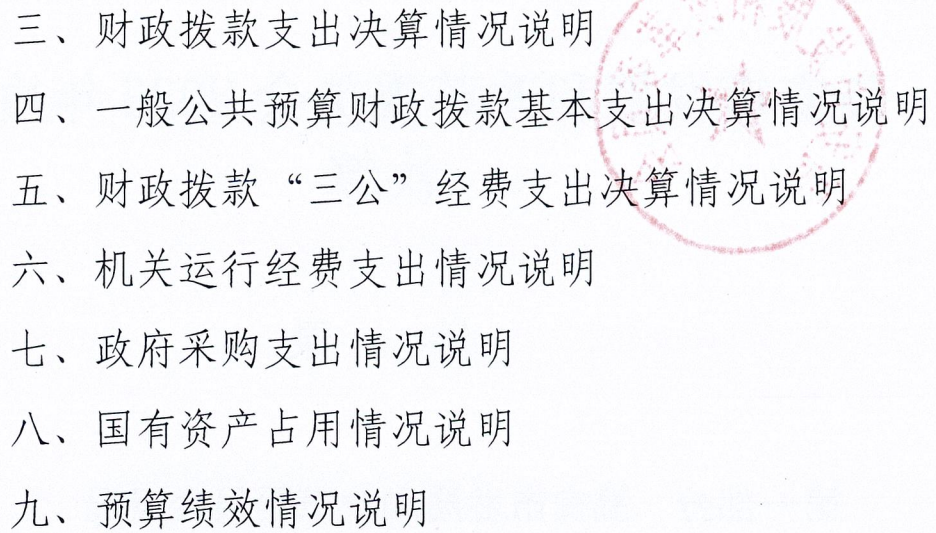 三、财政拨款支出决算情况说明
四、一般公共预算财政拨款基本支出决算情况说明
五、财政拨款“三公”经费支出决算情况说明
六、机关运行经费支出情况说明
七、政府采购支出情况说明
八、国有资产占用情况说明
九、预算绩效情况说明